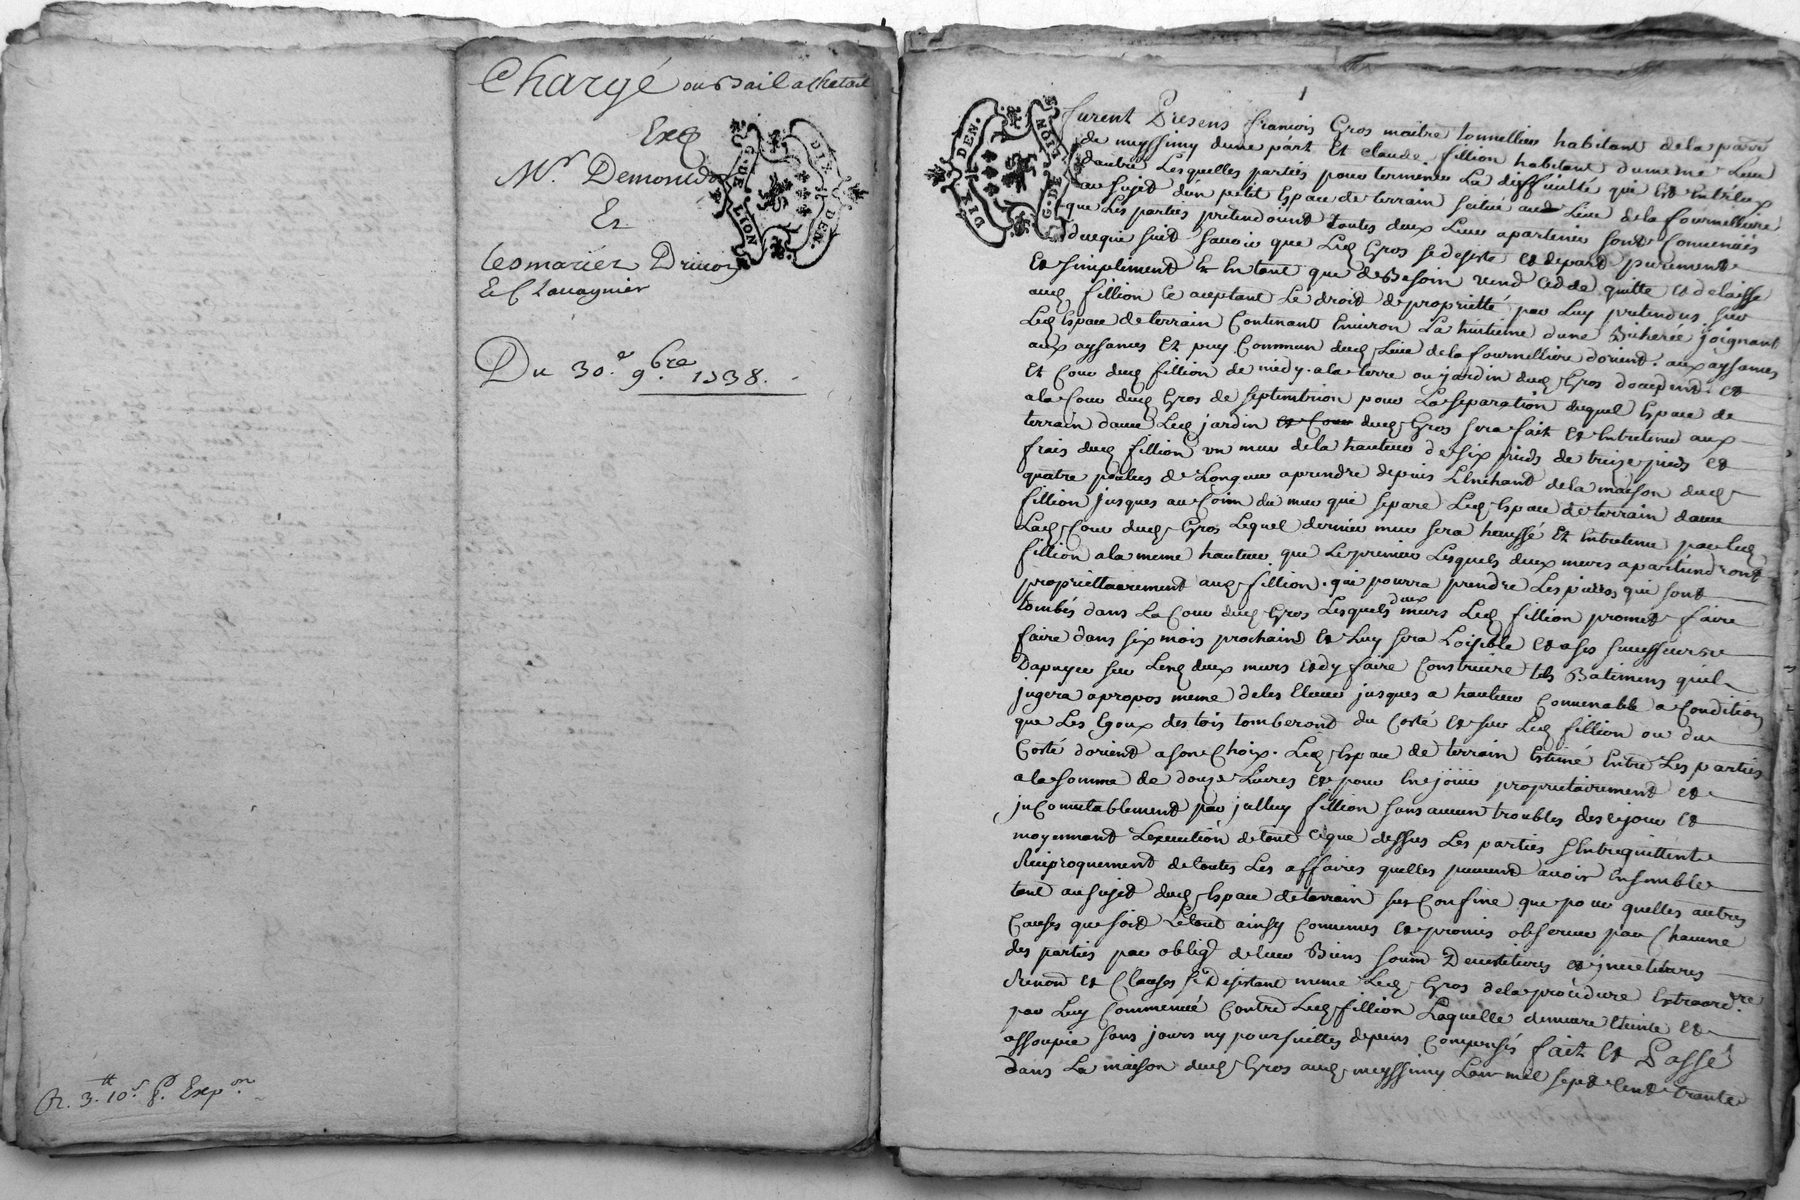 Chargé ou Bail a chetail
Exp
Mr. Demonido
Et
les mariez Drivon
Et Chavagnier
Du 30.e 9.bre 1738.
R. 3.tt 10.s p. Exp.on
G. DE LION
DIX DEN.
1
G. DE LION
DIX DEN.
furent Presens francois Gros maitre tonnellier habitant de la parr
de meyssimy dune part Et claude fillion habitant du meme Lieu
dautre Lesquelles parties pour terminer La difficulté qui est Entreux
au sujet dun petit Espace de terrain scitué aud Lieu de la fournilliere
que Les parties pretendoient toutes deux Leur apartenir sont Convenües
duequi suit Savoir que Led Gros se desiste et depart purement
Et simplement Et En tant que de Besoin vend cede quitte et delaisse
aud fillion ce aceptant Le droit de proprietté par Luy pretendus sur
Led Espace de terrain Contenant Environ La huitieme dune Bicherée joignant
aux aysances Et puy Commun dud Lieu de la fournilliere dorient. aux aysances
Et Cour dud fillion de midy. a la terre ou jardin dud Gros doccident. et
a la Cour dud Gros de septentrion pour La separation duquel Espace de
terrain davec Led jardin et Cour dud Gros sera fait Et Entretenu aux
frais dud fillion un mur de la hauteur de six pieds de treize pieds et
quatre poulces de Longueur aprendre depuis L'Enchant de la maison dud
fillion jusques au Coin du mur qui separe Led Espace de terrain davec
Lad Cour dud Gros Lequel dernier mur sera haussé Et Entretenu par led
fillion a la meme hauteur que Le premier Lesquels deux murs apartiendront
proprietairement aud fillion. qui pourra prendre Les pierres qui sont
tombés dans La Cour dud Gros Lesquels deux murs Led fillion promet faire
faire dans six mois prochains et Luy sera Loisible et a ses successeurs
Dapuyer sur Lesd deux murs et dy faire Construire tels Batimens quil
jugera apropos meme de les Elever jusques a hauteur Convenable a Condition
que Les Egoux des tois tomberont du Costé et sur Led fillion ou du
Costé dorient a son Choix. Led Espace de terrain Estimé Entre Les parties
a la somme de douze Livres et pour En jouir proprietairement et
jnComutablement par jcelluy fillion sans aucun troubles des cejour et
moyennant Lexecution de tout ceque dessus Les parties sEntrequittent
Reciproquement de toutes Les affaires quelles peuvent avoir Ensemble
tant au sujet dud Espace de terrain sus Confiné que pour quelles autres
Causes que soit Le tout ainsy Convenus et promis observer par Chacune
des parties par oblig de leur Biens soum Devestitures et jnvetitures
Renon et Clauses se Desistant meme Led Gros de la procedure Extraord.re
par Luy Commencé Contre Led fillion Laquelle demeure Eteinte et
assoupie sans jours ny poursuittes depens Compensés fait Et Passé
dans La maison dud Gros aud meyssimy Lan mil sept Cent trente